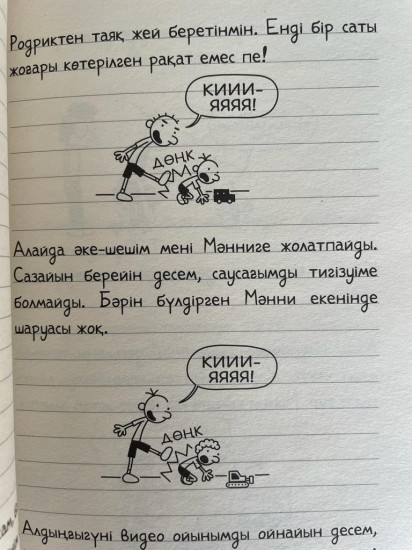 Родриктен таяқ жей беретінмін. Енді бір саты
жоғары көтерілген рақат емес пе!
КИИИ-
ЯЯЯЯ!
ДӨҢК
Алайда әке-шешім мені Мәнниге жолатпайды.
Сазайын берейін десем, саусағымды тигізуіме
болмайды. Бәрін бүлдірген Мәнни екенінде
шаруасы жоқ.
КИИИ-
ЯЯЯЯ!
ДӨҢК
Алдыңғыгүні видео ойынымды ойнайын десем,